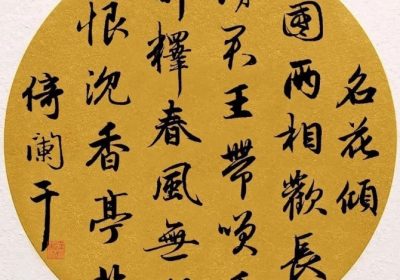 名花傾
國兩相歡長
君王帶咲
釋春風無
恨沉香亭
倚闌干